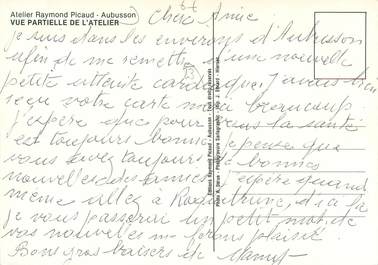 Atelier Raymond Picaud - Aubusson
VUE PARTIELLE DE L'ATELIER
Chère Amie
je suis dans les environs d'Aubusson
afin de me remettre d'une nouvelle
petite attente cardiaque, j'avais bien
reçu votre carte merci beaucoup
j'espère que pour vous la santé
est toujours bonne je pense que
vous avez toujours de bonnes
nouvelles des amies j'espère quand
même aller à et de là
je vous passerai un petit mot de
vos nouvelles me feront plaisir
Bons gros baisers de Mamy
Editions Raymond Picaud - Aubusson - Tous droits réservés